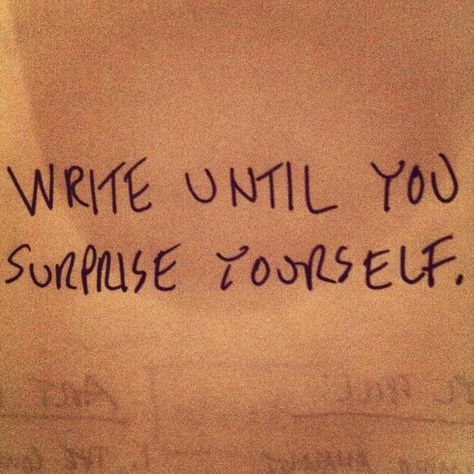 WRITE UNTIL YOU
SURPRISE YOURSELF.